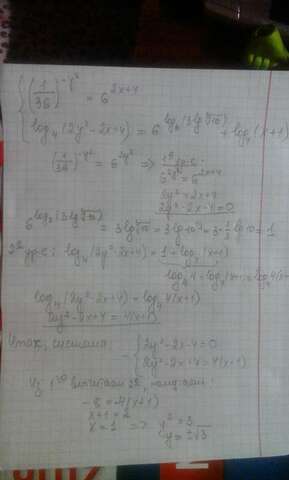 (1/36)^{-y²} = 6^{2x+4}
log₄(2y²-2x+4) = 6^{log₆(3lg∛10)} + log₄(x+1)
(1/36)^{-y²} = 6^{2y²} ⇒ 1ᵉ ур-е:
6^{2y²} = 6^{2x+4}
2y² = 2x+4
2y²-2x-4=0
6^{log₆(3lg∛10)} = 3lg∛10 = 3lg10^{1/3} = 3·1/3 lg10 = 1
2ᵉ ур-е: log₄(2y²-2x+4) = 1+log₄(x+1)
log₄4+log₄(x+1)=log₄4(x+1)
log₄(2y²-2x+4) = log₄4(x+1)
2y²-2x+4 = 4(x+1)
Итак, система
2y²-2x-4=0
2y²-2x+4=4(x+1)
Из 1ᵍᵒ вычитаем 2ᵉ,
-8 = -4(x+1)
x+1=2
x=1 ⇒ y²=3
y=±√3